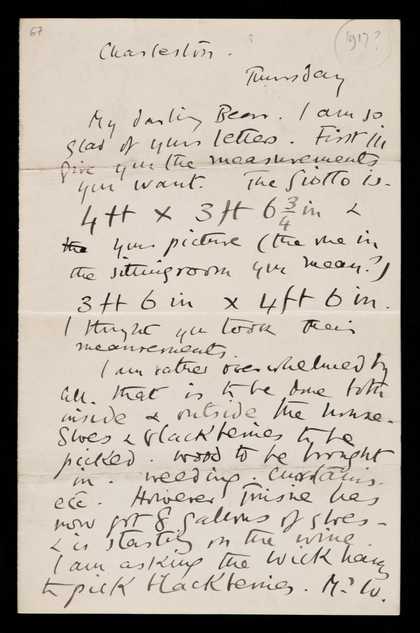 67
1917?
Charleston.
Thursday
My darling Bear. I am so
glad of your letter. First I'll
give you the measurements
you want. The Giotto is.
4 ft x 3 ft 6 3/4 in &
the your picture (the one in
the sitting room you mean?)
3 ft 6 in x 4 ft 6 in.
I thought you took their
measurements.
I am rather overwhelmed by
all that is to be done both
inside & outside the house.
Sloes & blackberries to be
picked. wood to be brought
in. weeding. curtains.
etc. However Trissie has
now got 8 gallons of sloes -
& is starting on the wine.
I am asking the
to pick blackberries. Mrs W.